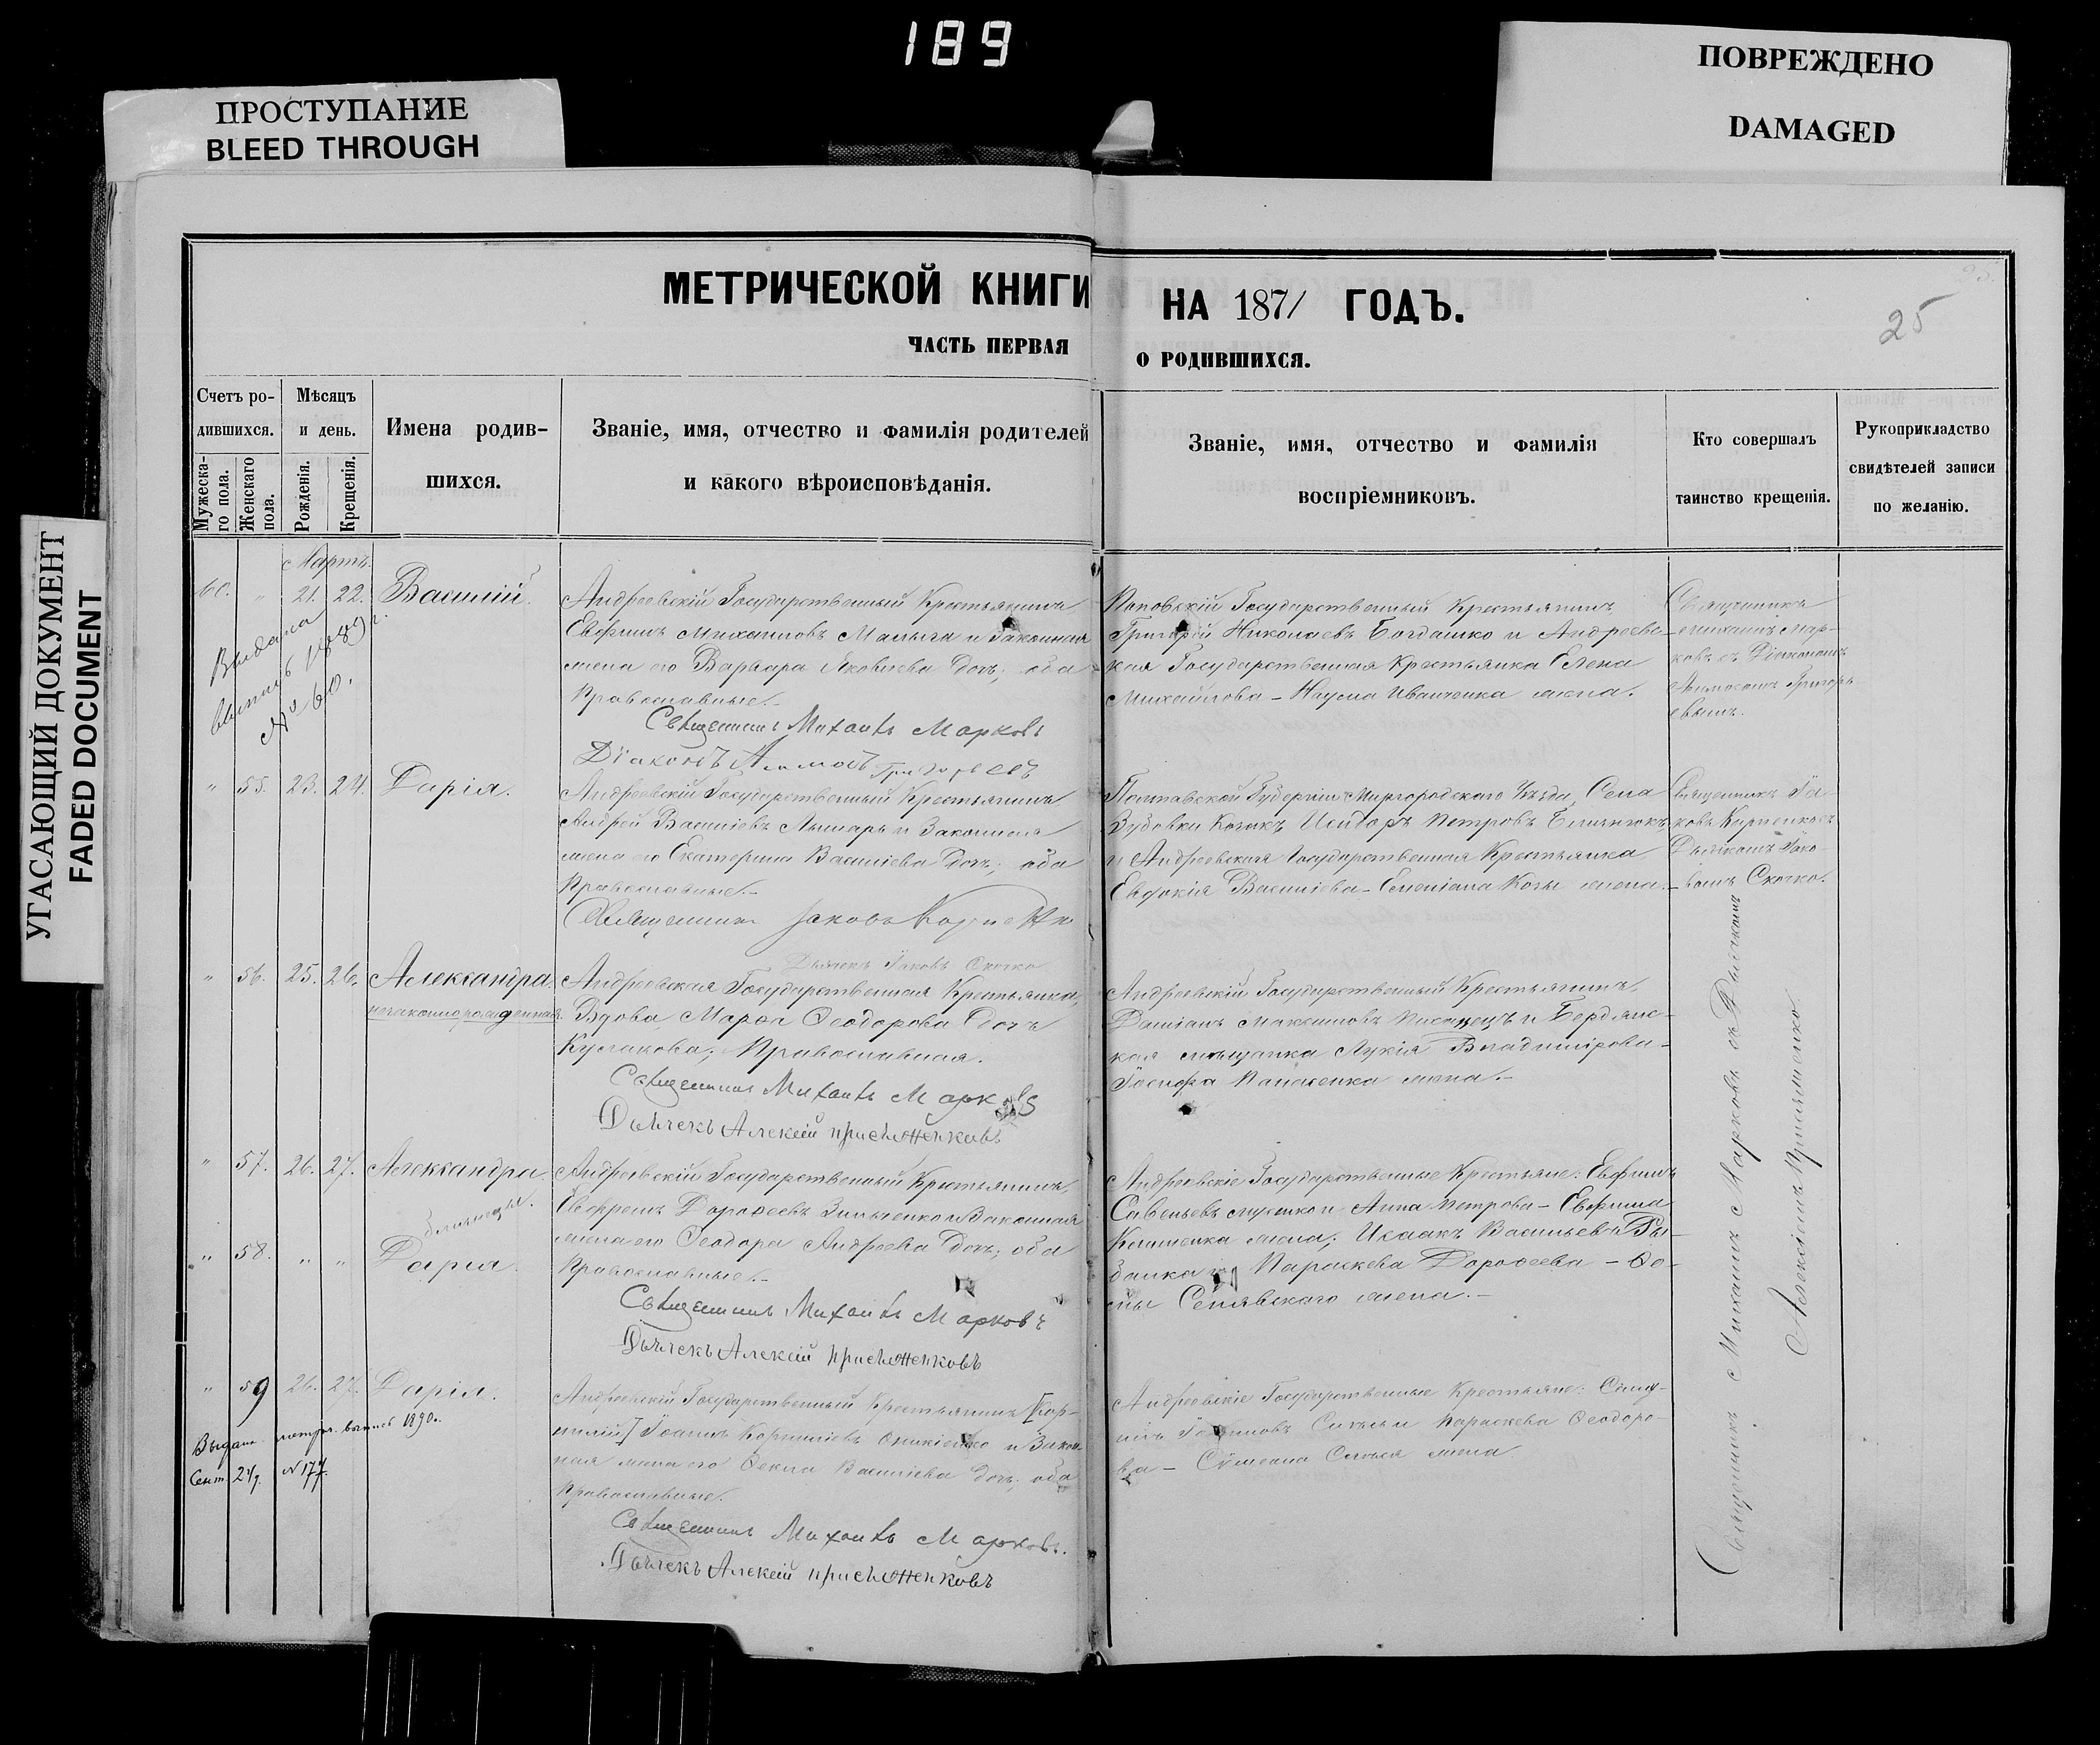 189
ПРОСТУПАНИЕ
BLEED THROUGH
ПОВРЕЖДЕНО
DAMAGED
УГАСАЮЩИЙ ДОКУМЕНТ
FADED DOCUMENT
МЕТРИЧЕСКОЙ КНИГИ НА 1871 ГОДЪ.
25
ЧАСТЬ ПЕРВАЯ О РОДИВШИХСЯ.
Счетъ ро-
дившихся.
Мужеска-
го пола.
Женскаго
пола.
Мѣсяцъ
и день.
Рожденія.
Крещенія.
Имена родив-
шихся.
Званіе, имя, отчество и фамилія родителей
и какого вѣроисповѣданія.
Званіе, имя, отчество и фамилія
воспріемниковъ.
Кто совершалъ
таинство крещенія.
Рукоприкладство
свидѣтелей записи
по желанію.
Мартъ.
60. " 21. 22. Василій.
Выдана
выпись 1889 г.
№ 60.
Андреевскій Государственный Крестьянинъ
Евфимъ Михаиловъ Малыга и Законная
жена его Варвара Яковлева дочь; оба
Православные.-
Священникъ Михаилъ Марковъ
Діаконъ Григорьевъ
Поповскій Государственный Крестьянинъ
Григорій Николаевъ Богдашко и Андреевс-
кая Государственная Крестьянка Елена
Михайлова - Наума Иванченка жена.
Священникъ
Михаилъ Мар-
ковъ съ Діакономъ
Григорь-
евымъ.
" 55. 23. 24. Дарія.
Андреевскій Государственный Крестьянинъ
Андрей Василіевъ Лымарь и Законная
жена его Екатерина Василіева дочь; оба
Православные.-
Священникъ Іаковъ
Дьячекъ Іаковъ Скочко
Полтавской Губерніи Миргородскаго Уѣзда, Села
Зубовки Козакъ Исидоръ Петровъ
и Андреевская Государственная Крестьянка
Евдокія Василіева - Козы жена.-
Священникъ Іа-
ковъ
Дьячкомъ Іако-
вомъ Скочко.
" 56. 25. 26. Александра.
незаконнорожденная.
Андреевская Государственная Крестьянка,
Вдова Марѳа Ѳеодорова дочь
Кулакова; Православная.
Священникъ Михаилъ Марковъ
Дьячекъ Алексій
Андреевскій Государственный Крестьянинъ,
Даміанъ Максимовъ Писанецъ и Бердянс-
кая мѣщанка Лукія Владимірова -
Іосифа Панасенка жена.-
" 57. 26. 27. Александра.
близнецы.
" 58. " " Дарія.
Андреевскій Государственный Крестьянинъ,
Евфремъ Дороѳеевъ Зинченко и Законная
жена его Ѳеодора Андреева дочь; оба
Православные.-
Священникъ Михаилъ Марковъ
Дьячекъ Алексій
Андреевскіе Государственные Крестьяне: Евфимъ
Савельевъ и Анна Петрова - Евфима
жена; Исаакъ Васильевъ Ры-
балка и Параскева Дороѳеева - Ѳо-
мы жена.-
" 59 26. 27. Дарія.
Выдана метрич. выпись 1890г.
Сент. 24 д. № 177.
Андреевскій Государственный Крестьянинъ [Кор-
нилій] Іоаннъ Корниліевъ и Закон-
ная жена его Ѳекла Василіева дочь; оба
Православные.
Священникъ Михаилъ Марковъ.
Дьячекъ Алексій
Андреевскіе Государственные Крестьяне:
и Параскева Ѳеодоро-
ва - жена
Священникъ Михаилъ Марковъ съ Дьячкомъ
Алексіемъ